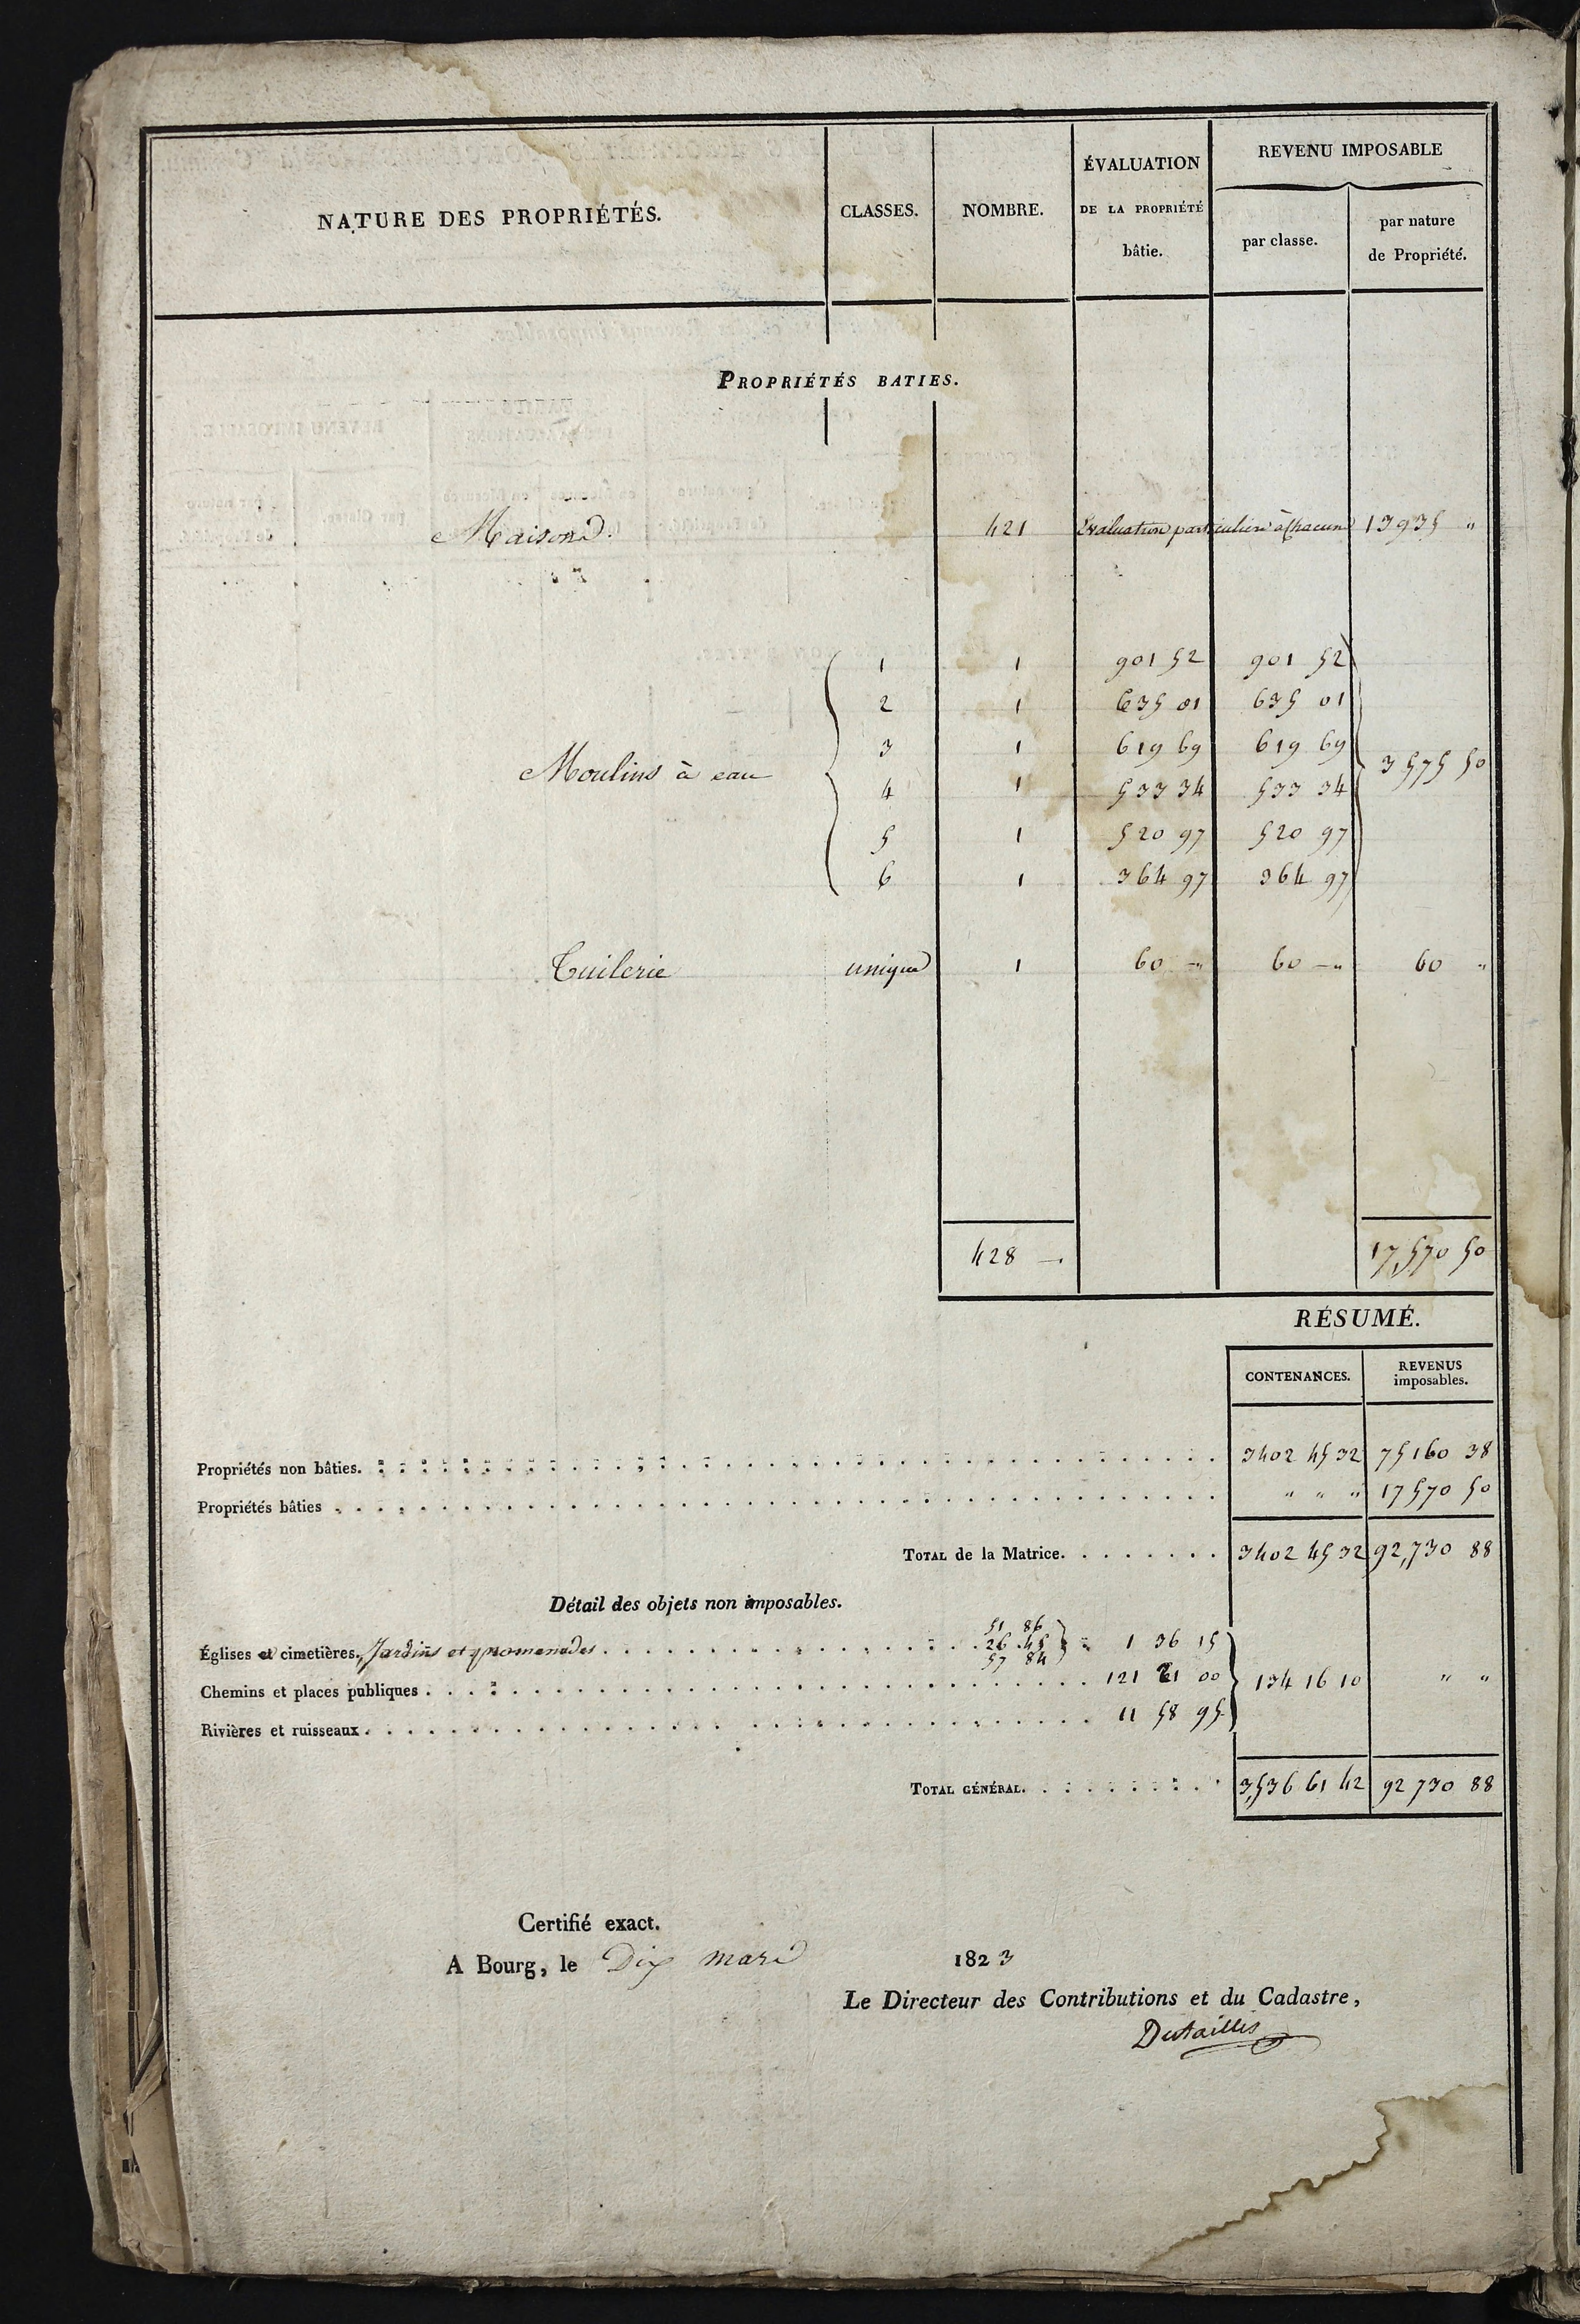 NATURE DES PROPRIÉTÉS. CLASSES. NOMBRE. ÉVALUATION DE LA PROPRIÉTÉ bâtie. REVENU IMPOSABLE par classe. par nature de Propriété.
PROPRIÉTÉS BATIES.
Maisons. 421 Evaluation particuliere à chacune 13935 "
Moulins à eau
1 1 901 52 901 52
2 1 635 01 635 01
3 1 619 69 619 69
3575 50
4 1 533 34 533 34
5 1 520 97 520 97
6 1 364 97 364 97
Tuilerie unique 1 60 " 60 " 60 "
428 17,570 50
RÉSUMÉ.
CONTENANCES. REVENUS imposables.
Propriétés non bâties. 3402 45 32 75160 38
Propriétés bâties " " " 17570 50
TOTAL de la Matrice. 3402 45 32 92,730 88
Détail des objets non imposables.
51 86
Églises et cimetières, Jardins et promenades 26 45 1 36 15
57 84
Chemins et places publiques 121 21 00 134 16 10 " "
Rivières et ruisseaux 11 58 95
TOTAL GÉNÉRAL. 3,536 61 42 92 730 88
Certifié exact.
A Bourg, le Dix mars 1823
Le Directeur des Contributions et du Cadastre,
Dutaillis